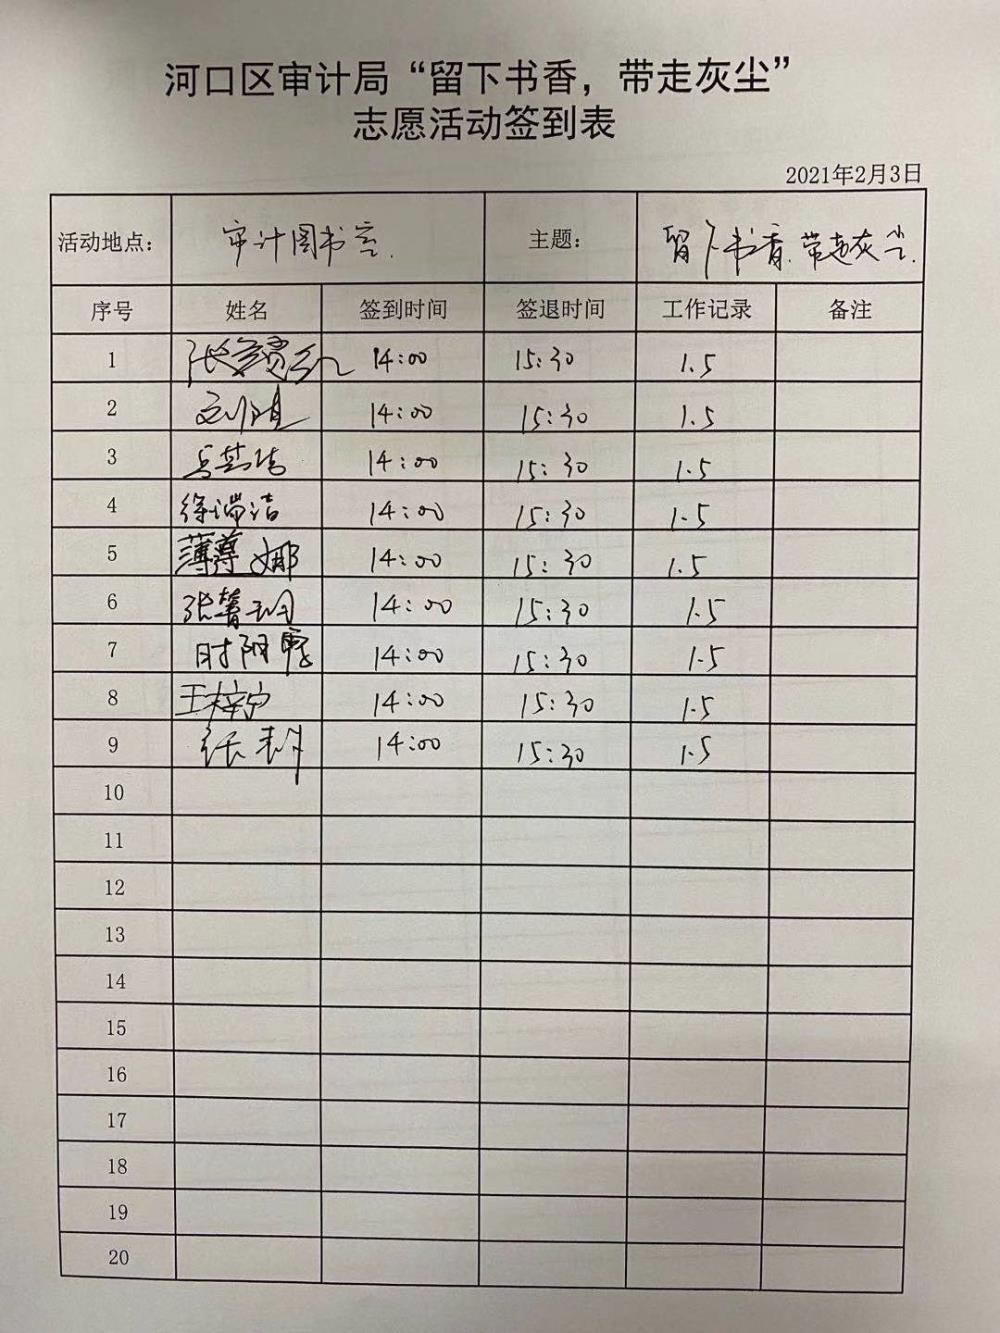 河口区审计局“留下书香，带走灰尘”
志愿活动签到表
2021年2月3日
活动地点： 审计图书室. 主题： 留下书香.带走灰尘.
序号 姓名 签到时间 签退时间 工作记录 备注
1 14:00 15:30 1.5
2 14:00 15:30 1.5
3 14:00 15:30 1.5
4 徐瑞洁 14:00 15:30 1.5
5 薄尊娜 14:00 15:30 1.5
6 张馨玥 14:00 15:30 1.5
7 14:00 15:30 1.5
8 王梓宁 14:00 15:30 1.5
9 14:00 15:30 1.5
10
11
12
13
14
15
16
17
18
19
20